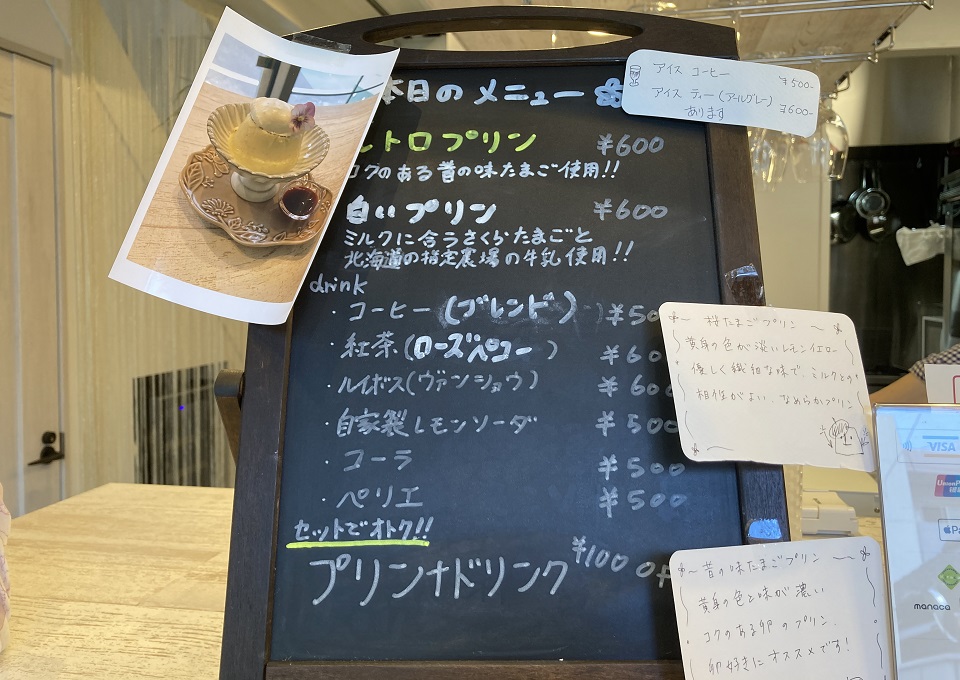 本日のメニュー
レトロプリン ¥600
コクのある昔の味たまご使用!!
白いプリン ¥600
ミルクに合うさくらたまごと
北海道の指定農場の牛乳使用!!
drink
・コーヒー(ブレンド) ¥500
・紅茶(ローズペコー) ¥600
・ルイボス(ヴァンショウ) ¥600
・自家製レモンソーダ ¥500
・コーラ ¥500
・ペリエ ¥500
セットでオトク!!
プリン+ドリンク ¥100 OFF
アイス コーヒー ¥500-
アイス ティー(アールグレー) ¥600-
あります
~ 桜たまごプリン ~
黄身の色が淡いレモンイエロー
優しく繊細な味で、ミルクとの
相性がよい、なめらかプリン
~ 昔の味たまごプリン ~
黄身の色と味が濃い
コクのある卵のプリン、
卵好きにオススメです!
VISA
manaca